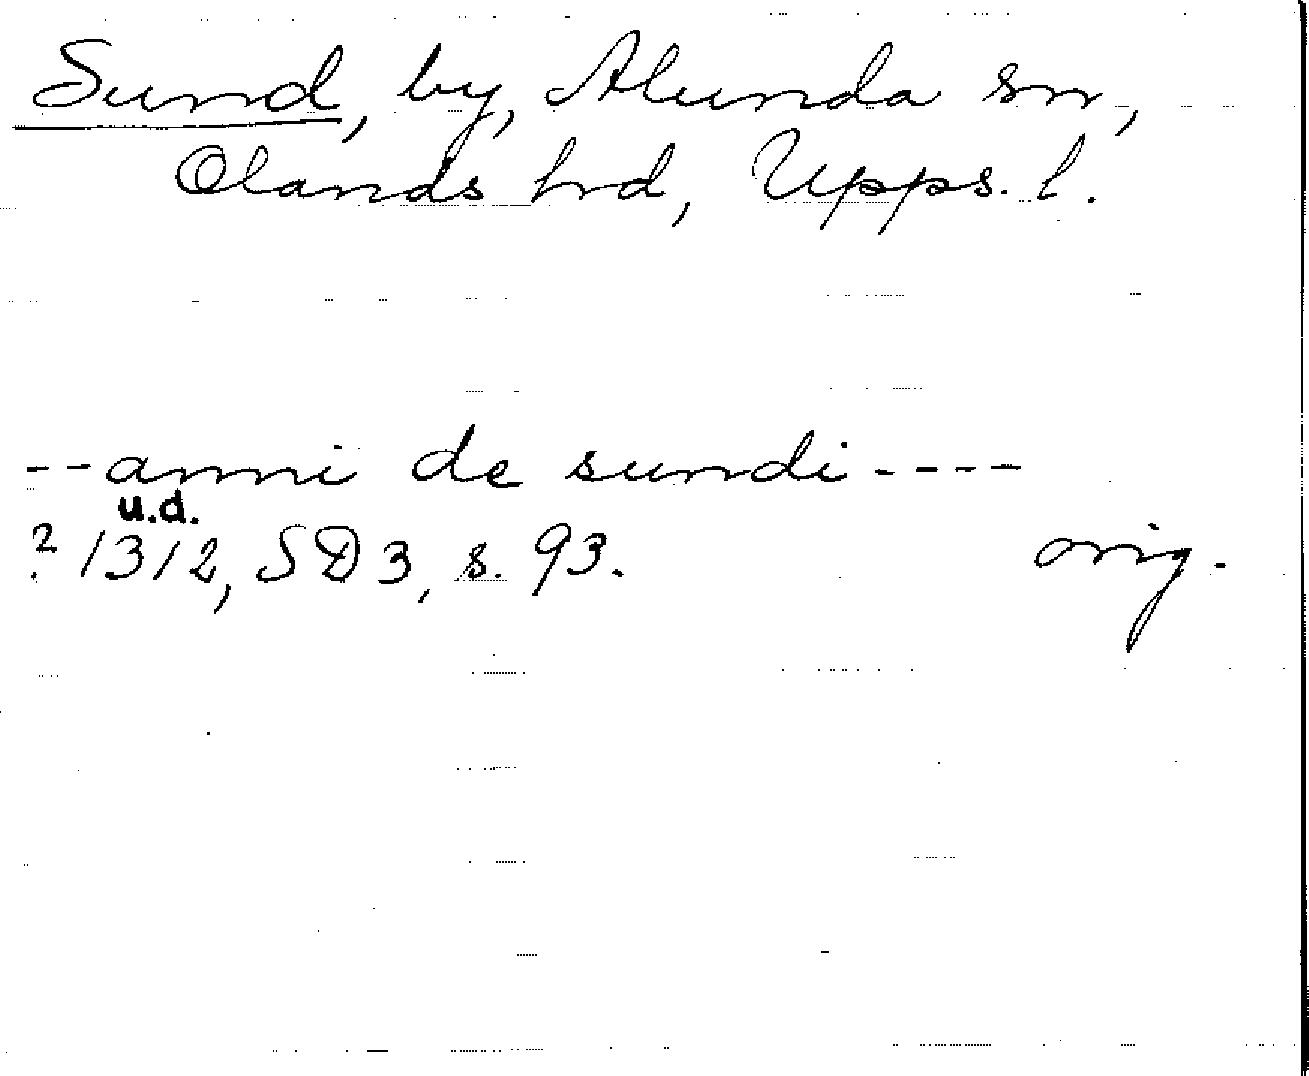 Sund, by, Alunda sn,
Olands hrd, Upps. l.
--anni de sundi----
u.d.
? 1312, SD3, s. 93. orig.